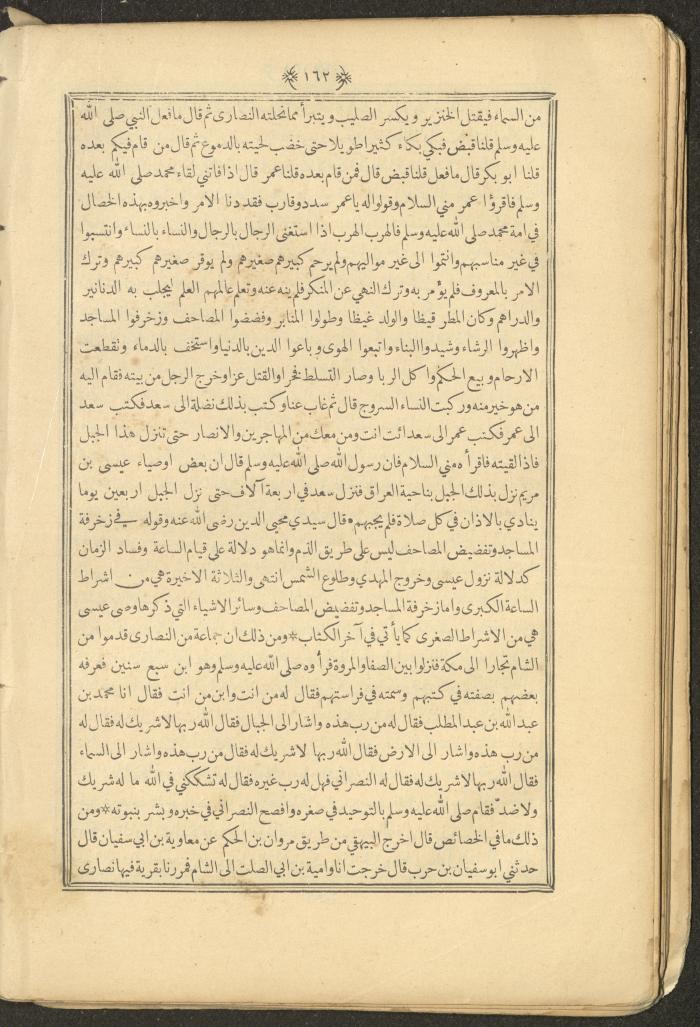 ١٦٢
من السماء فيقتل الخنزير ويكسر الصليب ويتبرأ مما نحلته النصارى ثم قال ما فعل النبي صلى الله
عليه وسلم قلنا قبض فبكى بكاء كثيرا طويلا حتى خضب لحيته بالدموع ثم قال من قام فيكم بعده
قلنا ابو بكر قال ما فعل قلنا قبض قال فمن قام بعده قلنا عمر قال اذا فاتني لقاء محمد صلى الله عليه
وسلم فاقرؤا عمر مني السلام وقولوا له ياعمر سدد وقارب فقد دنا الامر واخبروه بهذه الخصال
في امة محمد صلى الله عليه وسلم فالهرب الهرب اذا استغنى الرجال بالرجال والنساء بالنساء وانتسبوا
في غير مناسبهم وانتموا الى غير مواليهم ولم يرحم كبيرهم صغيرهم ولم يوقر صغيرهم كبيرهم وترك
الامر بالمعروف فلم يؤمر به وترك النهي عن المنكر فلم ينه عنه وتعلم عالمهم العلم ليجلب به الدنانير
والدراهم وكان المطر قيظا والولد غيظا وطولوا المنابر وفضضوا المصاحف وزخرفوا المساجد
واظهروا الرشاء وشيدوا البناء واتبعوا الهوى وباعوا الدين بالدنيا واستخف بالدماء وتقطعت
الارحام وبيع الحكم واكل الربا وصار التسلط فخرا والقتل عزا وخرج الرجل من بيته فقام اليه
من هو خير منه وركبت النساء السروج قال ثم غاب عنا وكتب بذلك نضلة الى سعد فكتب سعد
الى عمر فكتب عمر الى سعد ائت انت ومن معك من المهاجرين والانصار حتى تنزل هذا الجبل
فاذا لقيته فاقرأه مني السلام فان رسول الله صلى الله عليه وسلم قال ان بعض اوصياء عيسى بن
مريم نزل بذلك الجبل بناحية العراق فنزل سعد في اربعة آلاف حتى نزل الجبل اربعين يوما
ينادي بالاذان في كل صلاة فلم يجبهم * قال سيدي محيي الدين رضى الله عنه وقوله في زخرفة
المساجد وتفضيض المصاحف ليس على طريق الذم وانما هو دلالة على قيام الساعة وفساد الزمان
كدلالة نزول عيسى وخروج المهدي وطلوع الشمس انتهى والثلاثة الاخيرة هي من اشراط
الساعة الكبرى واما زخرفة المساجد وتفضيض المصاحف وسائر الاشياء التي ذكرها وصي عيسى
هي من الاشراط الصغرى كما يأتي في آخر الكتاب * ومن ذلك ان جماعة من النصارى قدموا من
الشام تجارا الى مكة فنزلوا بين الصفا والمروة فرأوه صلى الله عليه وسلم وهو ابن سبع سنين فعرفه
بعضهم بصفته في كتبهم وسمته في فراستهم فقال له من انت وابن من انت فقال انا محمد بن
عبد الله بن عبد المطلب فقال له من رب هذه واشار الى الجبال فقال الله ربها لا شريك له فقال له
من رب هذه واشار الى الارض فقال الله ربها لا شريك له فقال من رب هذه واشار الى السماء
فقال الله ربها لا شريك له فقال له النصراني فهل له رب غيره فقال له تشككني في الله ما له شريك
ولا ضد فقام صلى الله عليه وسلم بالتوحيد في صغره وافصح النصراني في خبره وبشر بنبوته * ومن
ذلك ما في الخصائص قال اخرج البيهقي من طريق مروان بن الحكم عن معاوية بن ابي سفيان قال
حدثني ابو سفيان بن حرب قال خرجت انا وامية بن ابي الصلت الى الشام فمررنا بقرية فيها نصارى